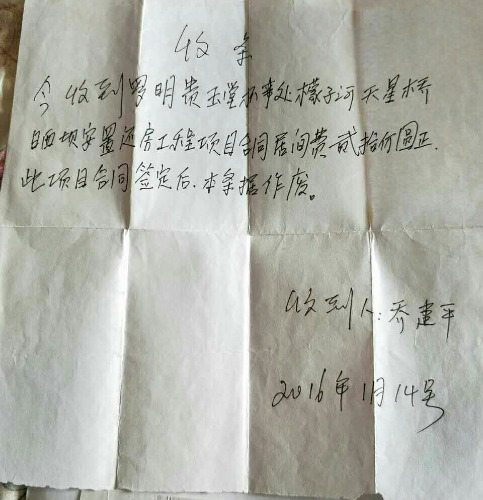 收条
今收到罗明贵玉堂办事处檬子河天星桥
晒坝安置还房工程项目合同居间费贰拾何圆正.
此项目合同签定后.本条据作废。
收到人:乔建平
2016年1月14号